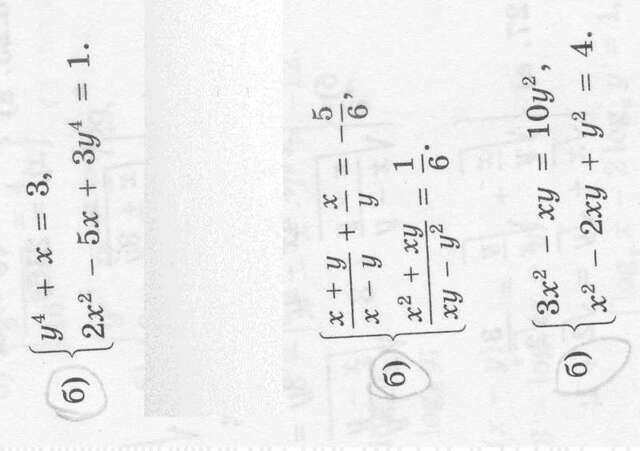 б) { y⁴ + x = 3,
2x² − 5x + 3y⁴ = 1.
б) { (x + y)/(x − y) + x/y = −5/6,
(x² + xy)/(xy − y²) = 1/6.
б) { 3x² − xy = 10y²,
x² − 2xy + y² = 4.